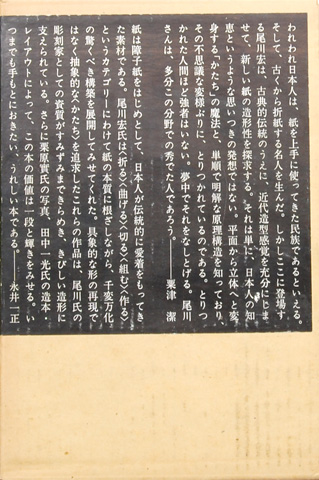 われわれ日本人は、紙を上手に使ってきた民族であるといえる。
そして、古くから折紙する名人を生んだ。しかしここに登場す
る尾川宏は、古典的伝統のうえに、近代造型感覚を充分にしま
せて、新しい紙の造形性を探求する。それは単に、日本人の知
恵というような思いつきの発想ではない。平面から立体へと変
身する〝かたち〟の魔法と、単順で明解な原理構造を知っており、
その不思議な変様ぶりに、とりつかれているのである。とりつ
かれた人間ほど強者はいない。夢中でそれをなしとげる。尾川
さんは、多分この分野での秀でた人であろう。――粟津 潔
紙は障子紙をはじめとして、日本人が伝統的に愛着をもってき
た素材である。尾川宏氏は〈折る〉〈曲げる〉〈切る〉〈組む〉〈作る〉
というカテゴリーにわけて紙の本質に根ざしながら、千変万化
の驚くべき構築を展開してみせてくれた。具象的な形の再現で
はなく抽象的な〈かたち〉を追求したこれらの作品は、尾川氏の
彫刻家としての資質がすみずみまできらめき、きびしい造形に
支えられている。さらに栗原實氏の写真、田中一光氏の造本・
レイアウトによって、この本の価値は一段と輝きをみせる。い
つまでも手もとにおきたい、うれしい本である。――永井一正